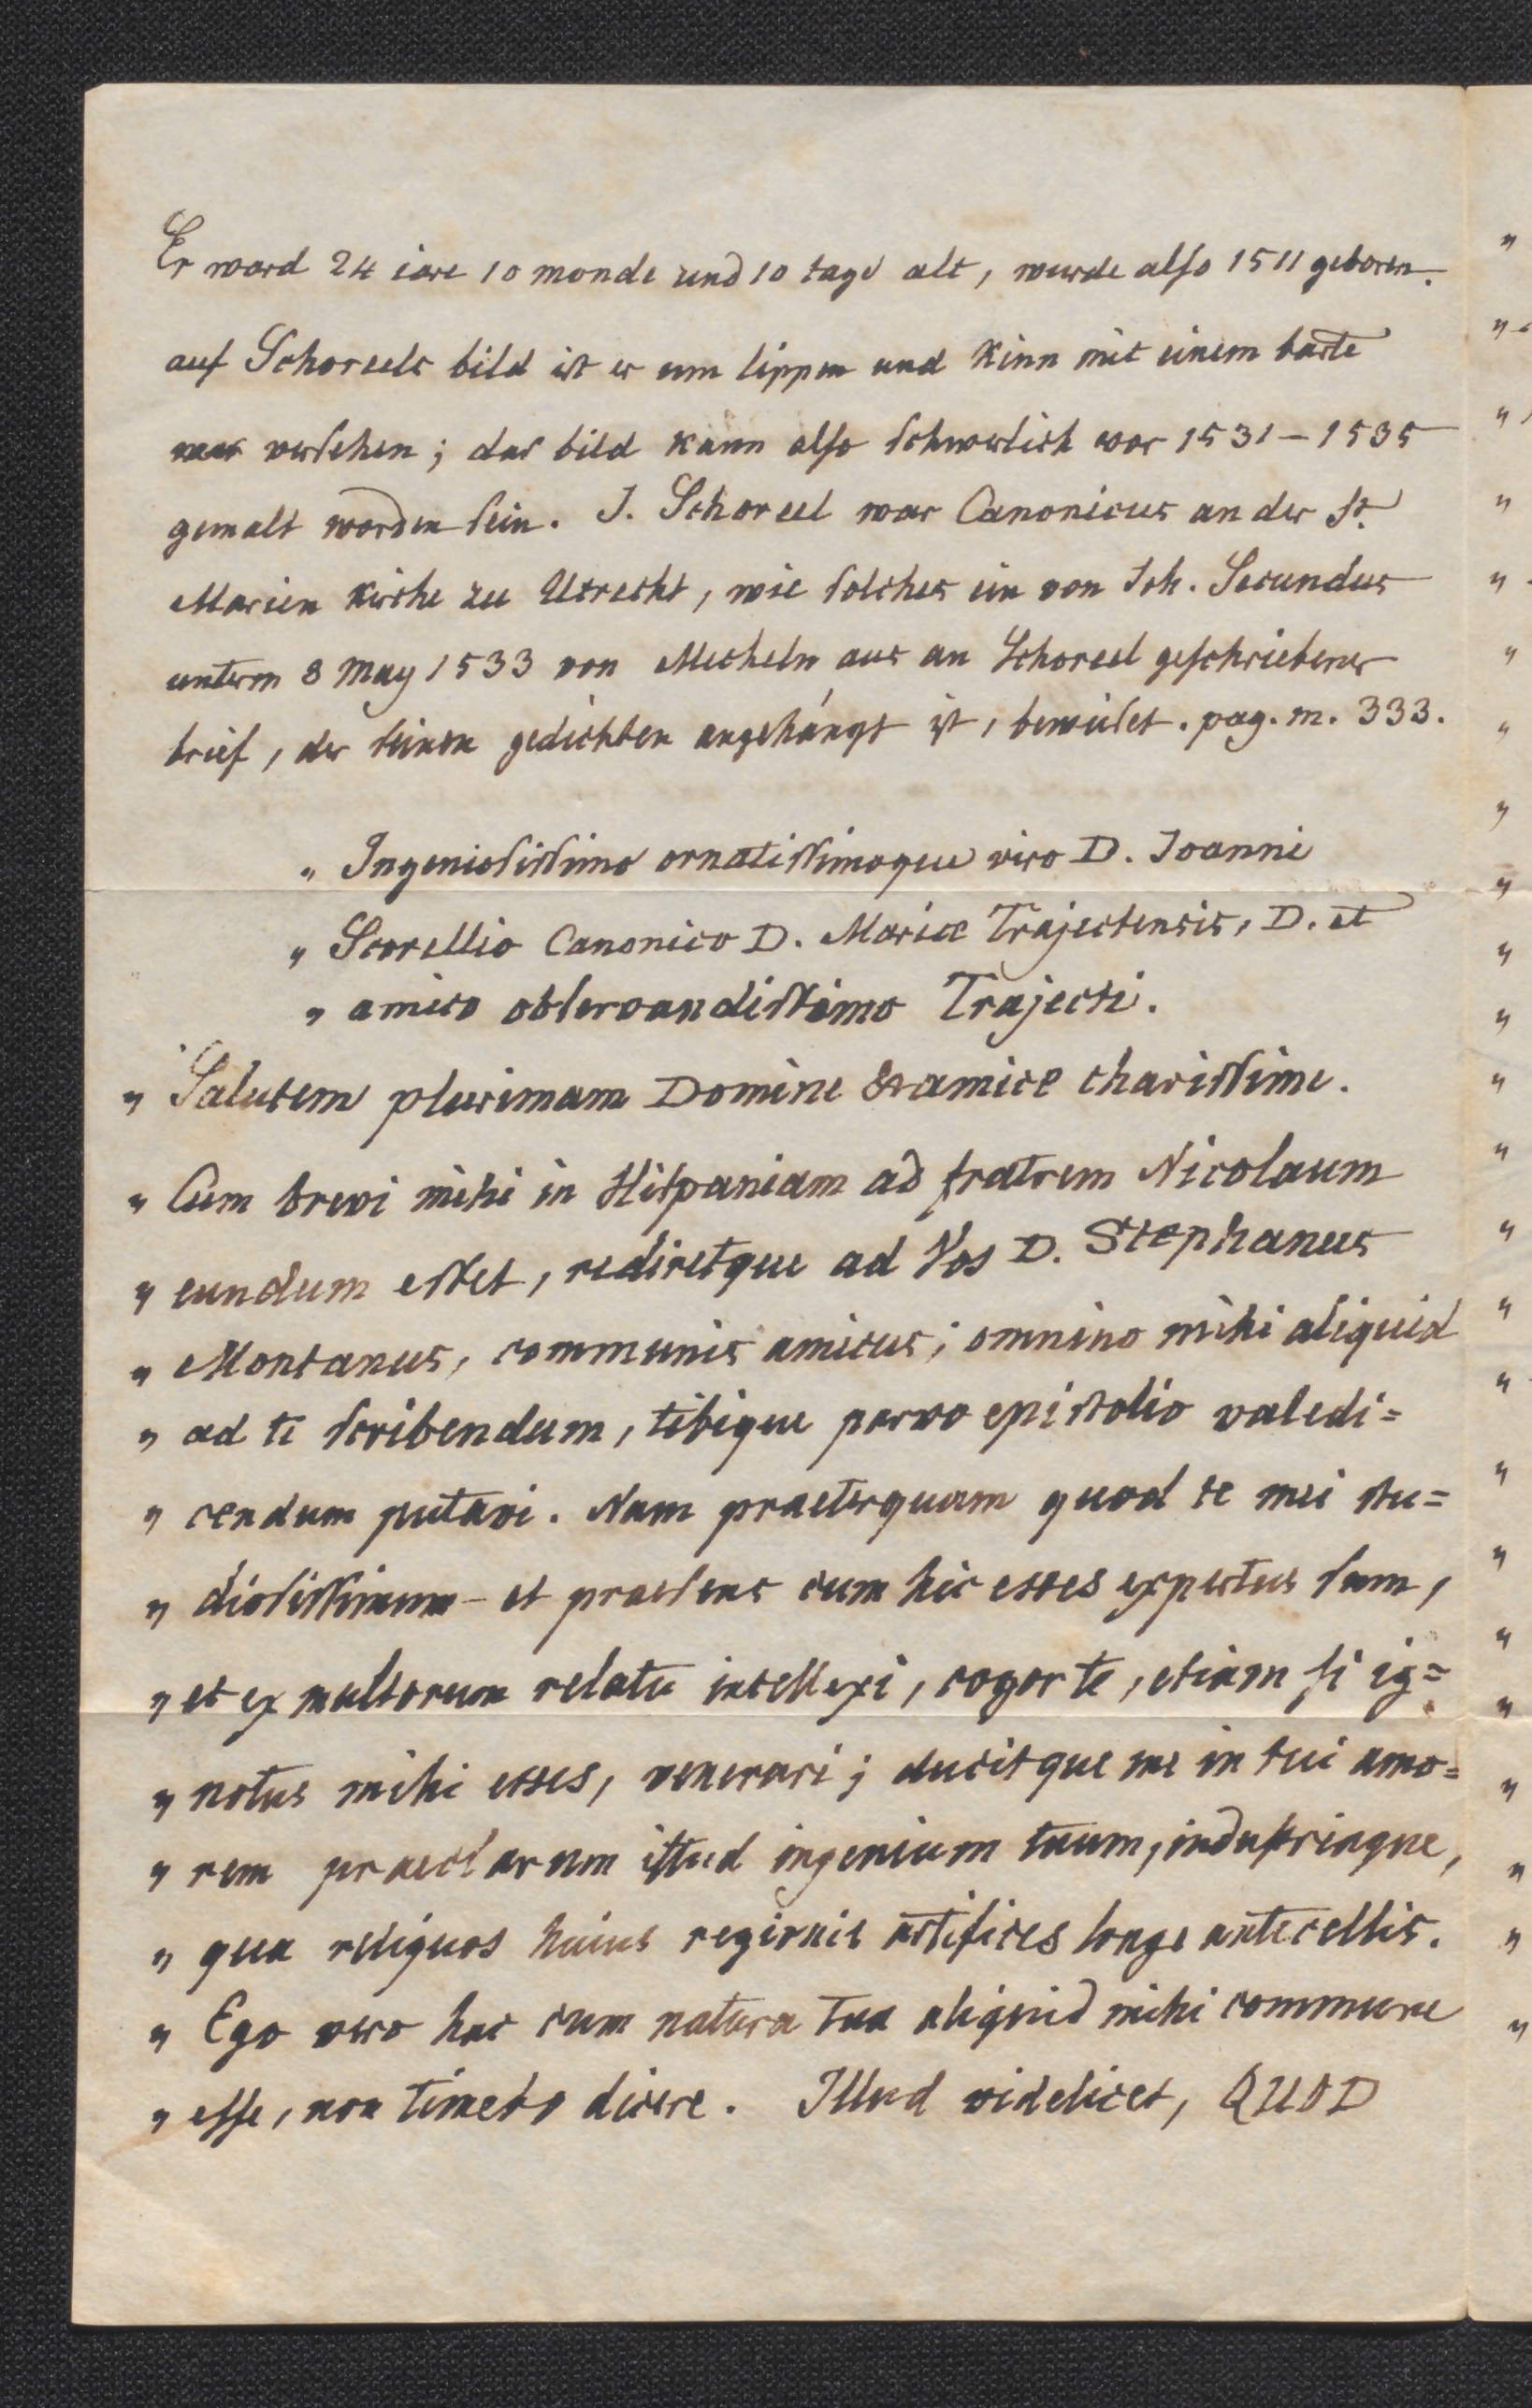 Er ward 24 iare 10 monde und 10 tage alt, wurde also 1511 geboren.
auf Schoreels bild ist er um lippen und Kinn mit einem barte
versehen; das bild kann also schwerlich vor 1531 – 1535
gemalt worden sein. J. Schoreel war Canonicus an der St.
Marien Kirche zu Utrecht, wie solches ein von Joh. Secundus
unterm 8 May 1533 von Mecheln aus an Schoreel geschriebener
brief, der seinen gedichten angehängt ist, beweiset. pag. m. 333.
„ Ingeniosissimo ornatissimoque viro D. Joanni
„ Scorellio Canonico D. Mariæ Trajectensis, D. et
„ amico observandissimo Trajecti.
„ Salutem plurimam Domine & amice charissime.
„ Cum brevi mihi in Hispaniam ad fratrem Nicolaum
„ eundum esset, rediretque ad Vos D. Stephanus
„ Montanus, communis amicus; omnino mihi aliquid
„ ad te scribendum, tibique parvo epistolio valedi=
„ cendum putavi. Nam praeterquam quod te mei stu=
„ diosissimum – et praesens cum hic esses expertus sum,
„ et ex multorum relatu intellexi, cogor te, etiam si ig=
„ notus mihi esses, venerari; ducitque me in tui amo=
„ rem praeclarum istud ingenium tuum, industriaque,
„ qua reliquos huius regionis artifices longe antecellis.
„ Ego vero hac cum natura tua aliquid mihi commune
„ esse, non timebo dicere. Illud videlicet, QUOD